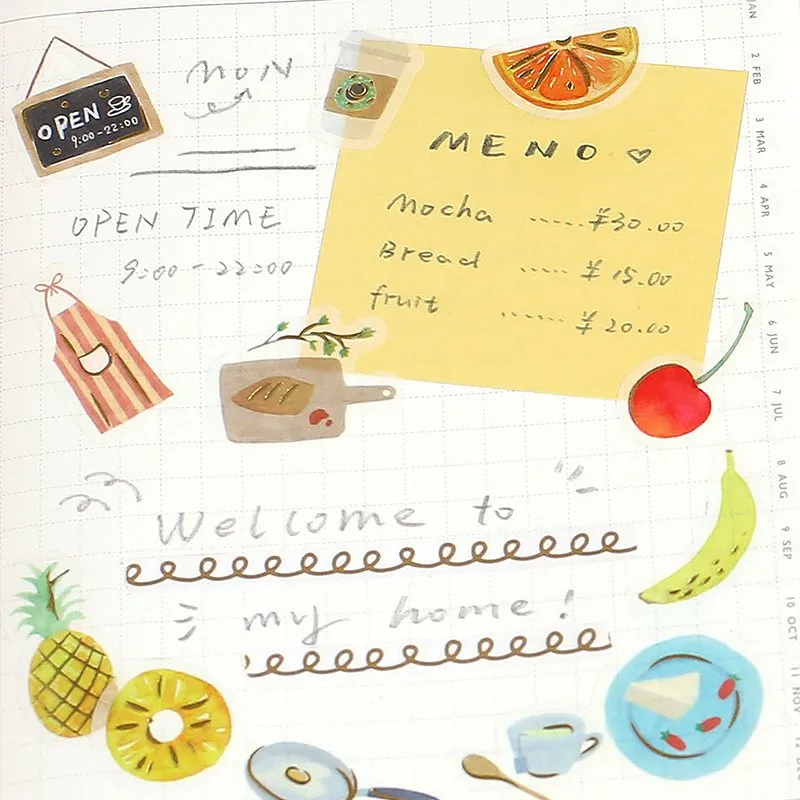 OPEN
9:00-22:00
MON
OPEN TIME
9:00-22:00
MENO ♡
Mocha ...... ¥30.00
Bread ..... ¥ 15.00
fruit ...... ¥ 20.00
Welcome to
my home!
JAN
2 FEB
3 MAR
4 APR
5 MAY
6 JUN
7 JUL
8 AUG
9 SEP
10 OCT
11 NOV
12 DEC